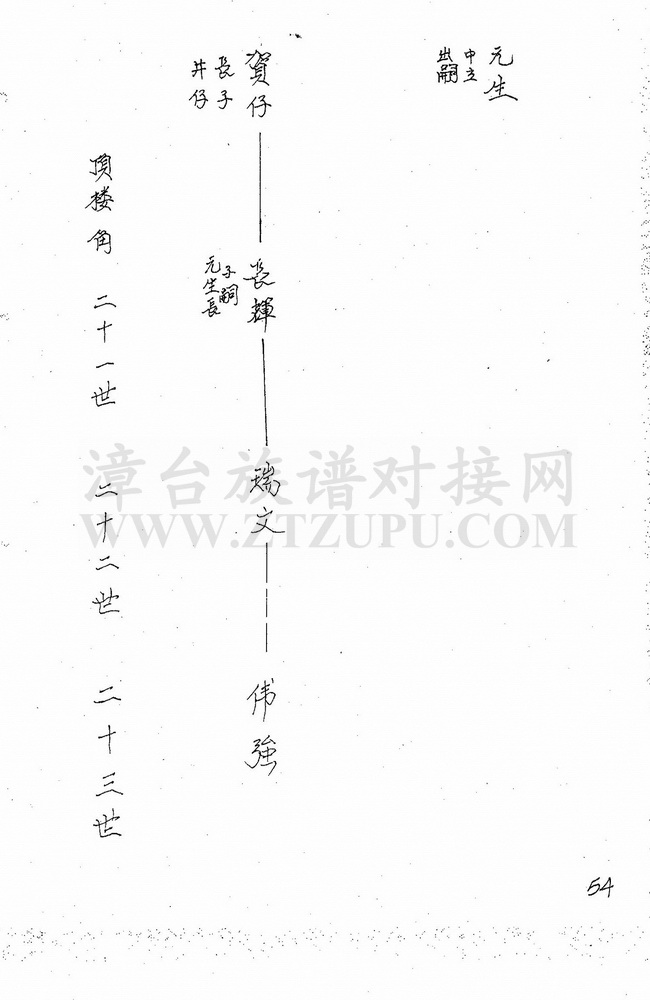 元生
中立
出嗣
賀仔
長子
井仔
長輝
子嗣
元生長
瑞文
伟強
頂楼角 二十一世 二十二世 二十三世
漳台族谱对接网
WWW.ZTZUPU.COM
54